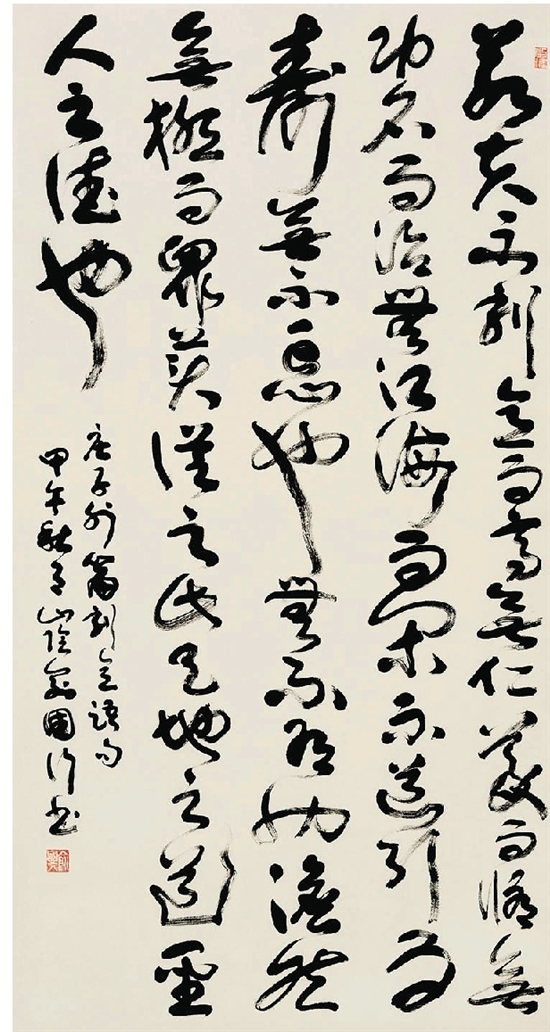 若夫不刻意而高無仁義而修無
功名而治無江海而閒不道引而
壽無不忘也無不有也澹然
無極而衆美從之此天地之道聖
人之德也
庄子外篇刻意語句
甲午秋月山陰國書